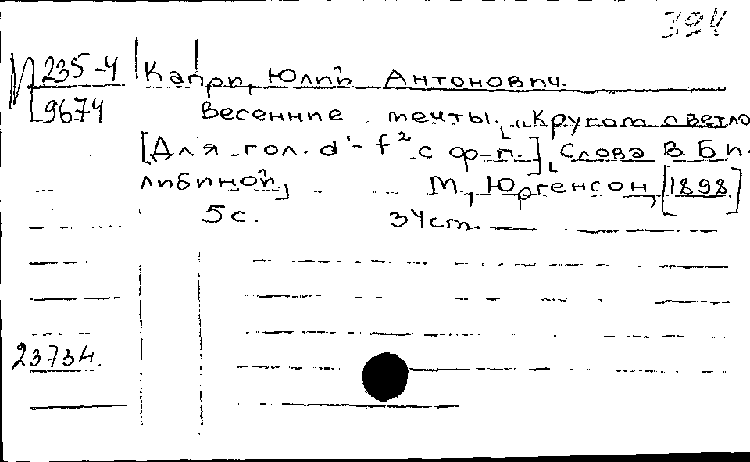 394
N 235-4 Капри, Юлий Антонович.
9674 Весенние мечты. "Кругом светло
[Для гол. d'-f² с ф-п.] Слова В. Би-
либиной,   М., Юргенсон, [1898]
5 с.   34 ст.
23734.